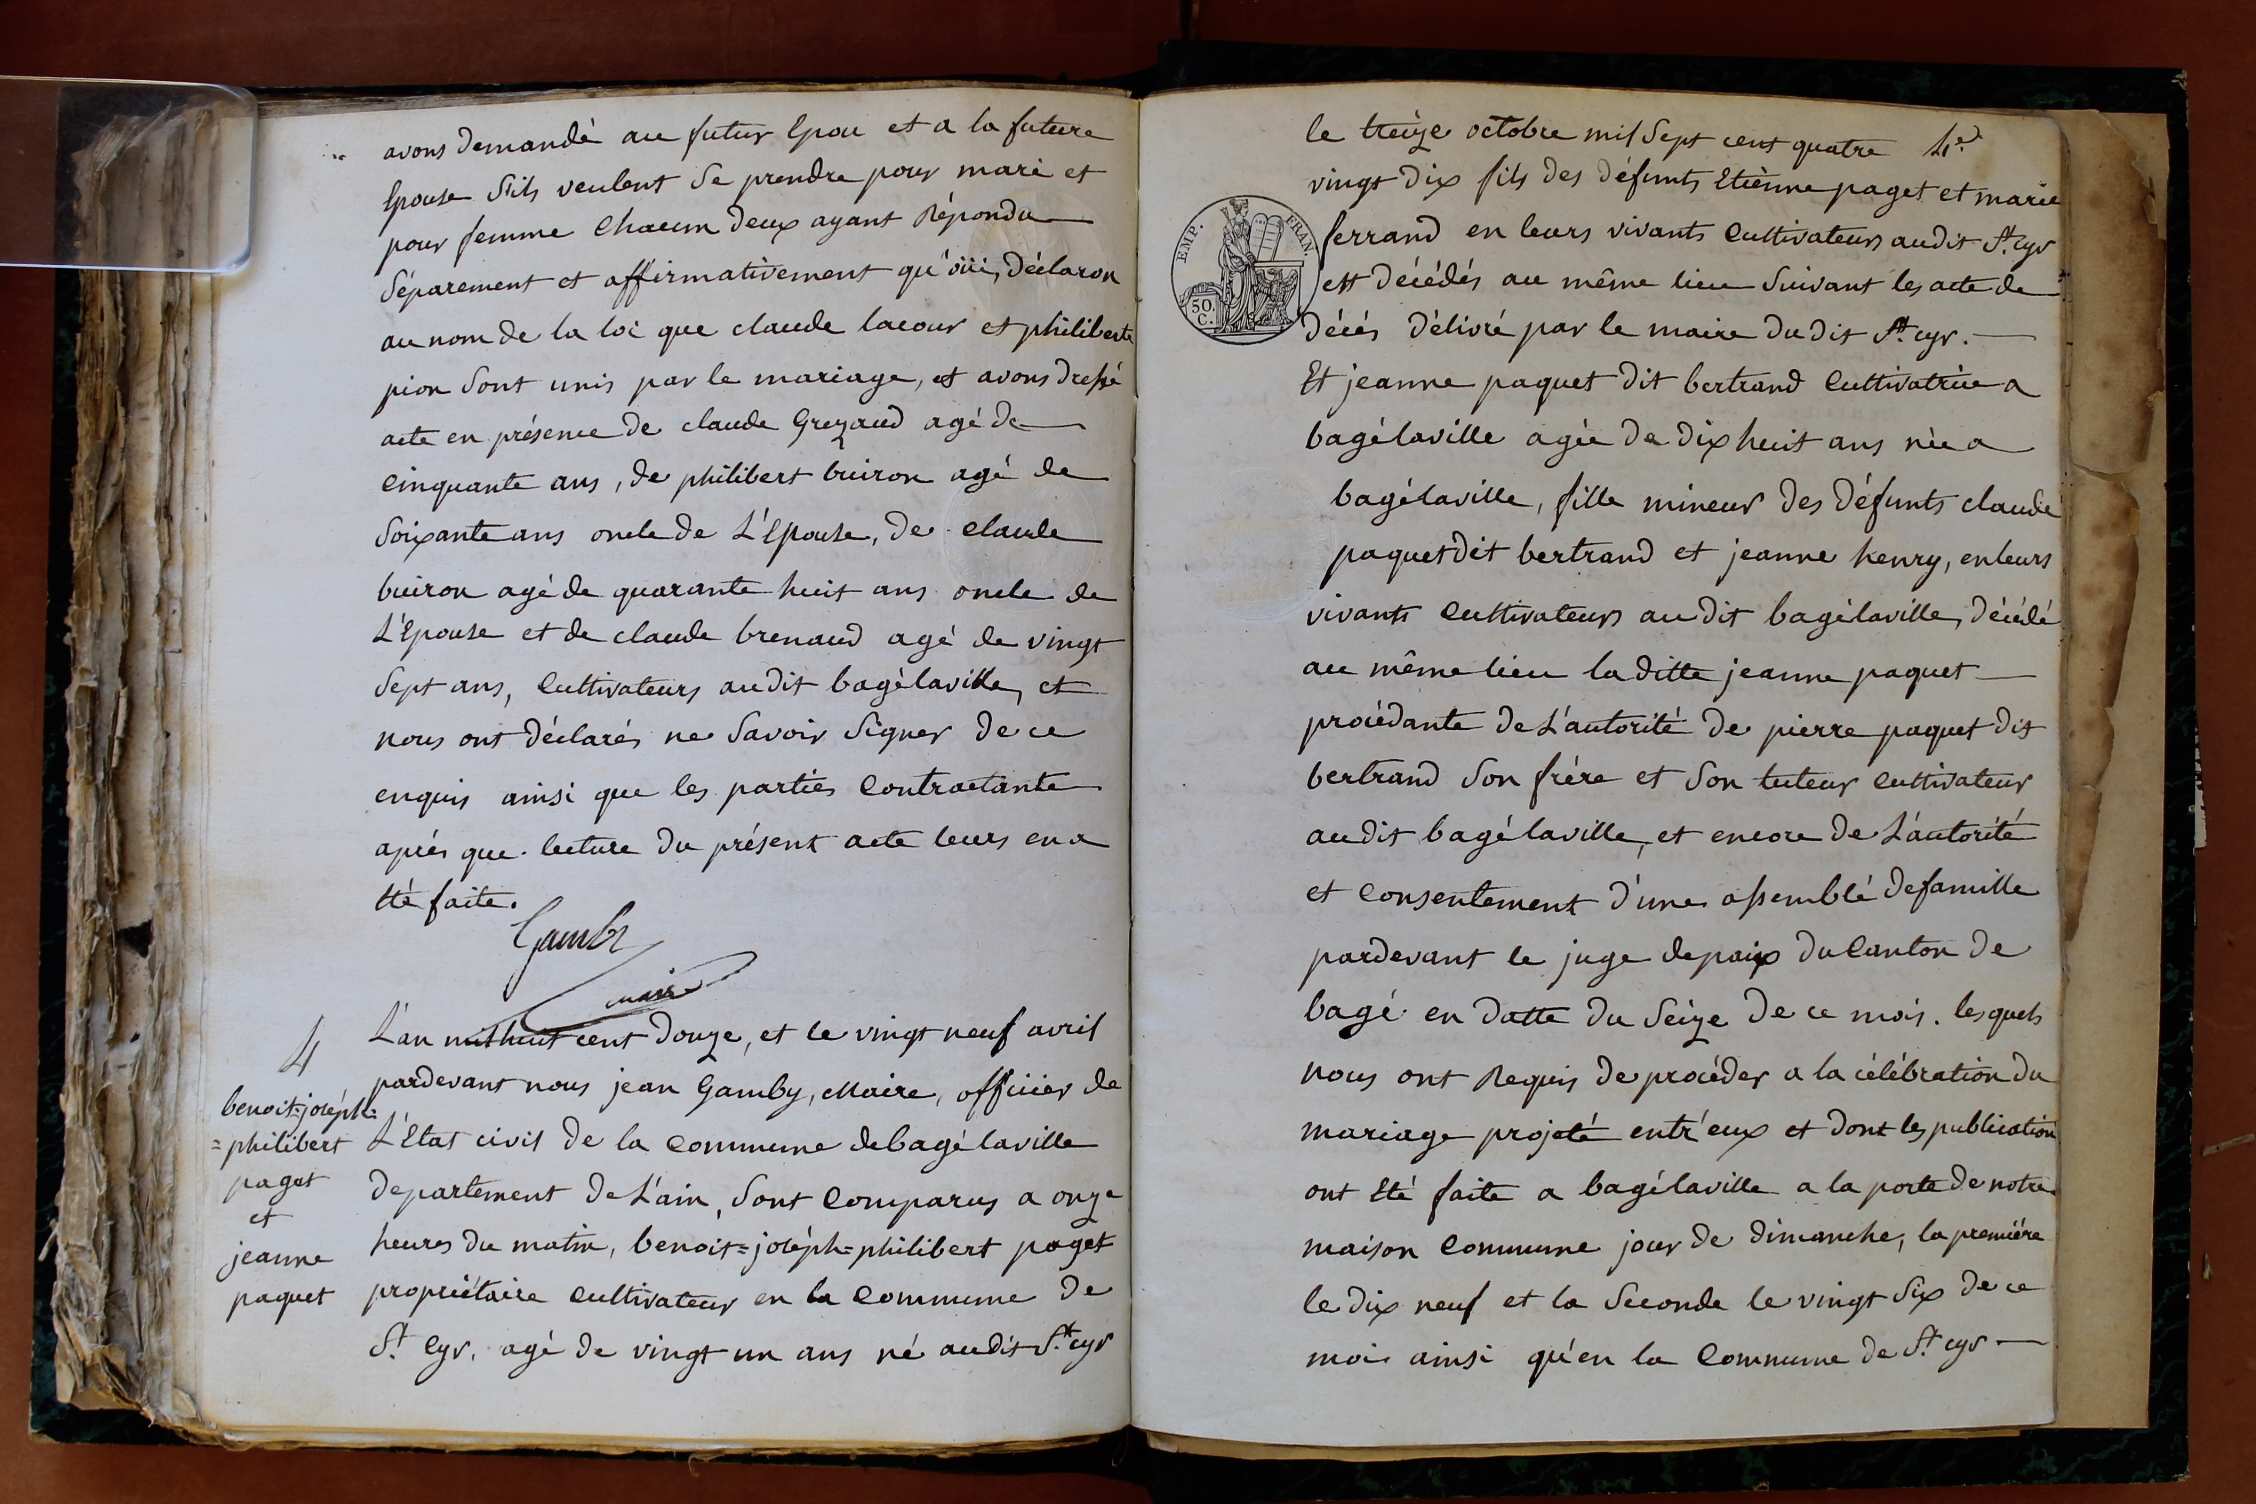 avons demandé au futur Epou et a la future
Epouse S'ils veulent Se prendre pour mari et
pour femme Chacun deux ayant Répondu
Séparement et affirmativement qu'oüi, déclaron
au nom de la loi que claude lacour et philiberte
pion Sont unis par le mariage, et avons dressé
acte en présence de claude Greyaud agé de
Cinquante ans, de philibert buiron agé de
Soixante ans oncle de L'Epouse, de claude
buiron agé de quarante huit ans oncle de
L'Epouse et de claude brenaud agé de vingt
Sept ans, Cultivateurs audit bagélaville, et
nous ont déclarés ne Savoir Signer de ce
enquis ainsi que les parties Contractante
aprés que lecture du présent acte leurs en a
Eté faite.
Gamby
maire
4
benoit=joséph=
=philibert
paget
et
jeanne
paquet
L'an mil huit cent douze, et le vingt neuf avril
pardevant nous jean Gamby, Maire, officier de
L'Etat civil de la Commune de bagélaville
departement de L'ain, Sont Comparus a onze
heures du matin, benoit=joséph=philibert paget
propriétaire Cultivateur en la Commune de
St. Cyr, agé de vingt un ans né audit St. cyr
le treize octobre mil Sept cent quatre
vingt dix fils des défunts Etiènne paget et marie
ferrand en leurs vivants Cultivateurs audit St. cyr
ett décédés au même lieu Suivant les acte de
décés délivré par le maire du dit St. cyr.
Et jeanne paquet dit bertrand Cultivatrice a
bagélaville agée de dix huit ans née a
bagélaville, fille mineur des défunts claude
paquet dit bertrand et jeanne henry, en leurs
vivants Cultivateurs au dit bagélaville, décédé
au même lieu la ditte jeanne paquet
procédante de L'autorité de pierre paquet dit
bertrand Son frére et Son tuteur cultivateur
audit bagélaville, et encore de L'autorité
et Consentement d'une assemblé de famille
pardevant le juge de paix du Canton de
bagé en datte du Seize de ce mois. lesquels
nous ont Requis de procéder a la célébration du
mariage projeté entr'eux et dont les publication
ont Eté faite a bagélaville a la porte de notre
maison Commune jour de dimanche, la premiére
le dix neuf et la Seconde le vingt Six de ce
mois ainsi qu'en la Commune de St. cyr
EMP. FRAN.
50.
C.